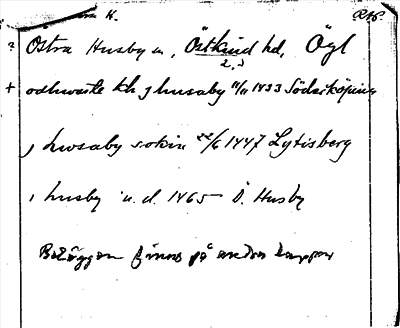 K. RAP.
? Östra Husby sn, Östkind hd, Ögl
2,3
+ odhwaste kh j husaby 11/11 1433 Söderköping
j hwsaby sokin 22/6 1447 Lytisberg
i husby u.d. 1465 Ö. Husby
Beläggen finns på andra lappar